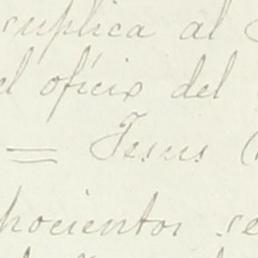 suplica al
el oficio del
= Jesus (
hocientos se